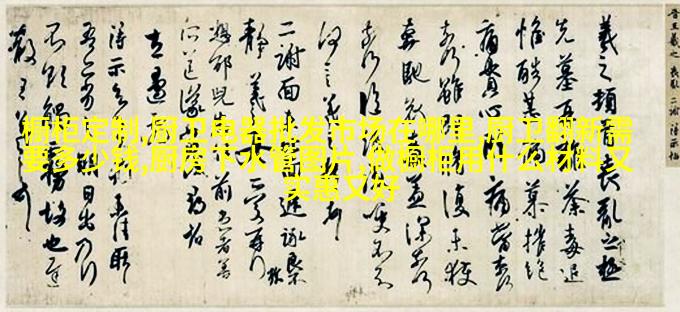 橱柜定制,厨卫电器批发市场在哪里,厨卫翻新需
要多少钱,厨房下水管图片,做橱柜用什么材料又
实惠又好
晋王羲之 喪亂 二謝 得示帖
羲之頓首喪亂之極
先墓再離荼毒追
惟酷甚號慕摧絕
痛貫心肝痛當奈何
奈何雖即脩復未獲
奔馳哀毒益深奈何
奈何臨紙感哽不知
何言羲之頓首頓首
二謝面未比面遲詠良
靜羲之女愛再拜
想邴兒悉佳前患者善